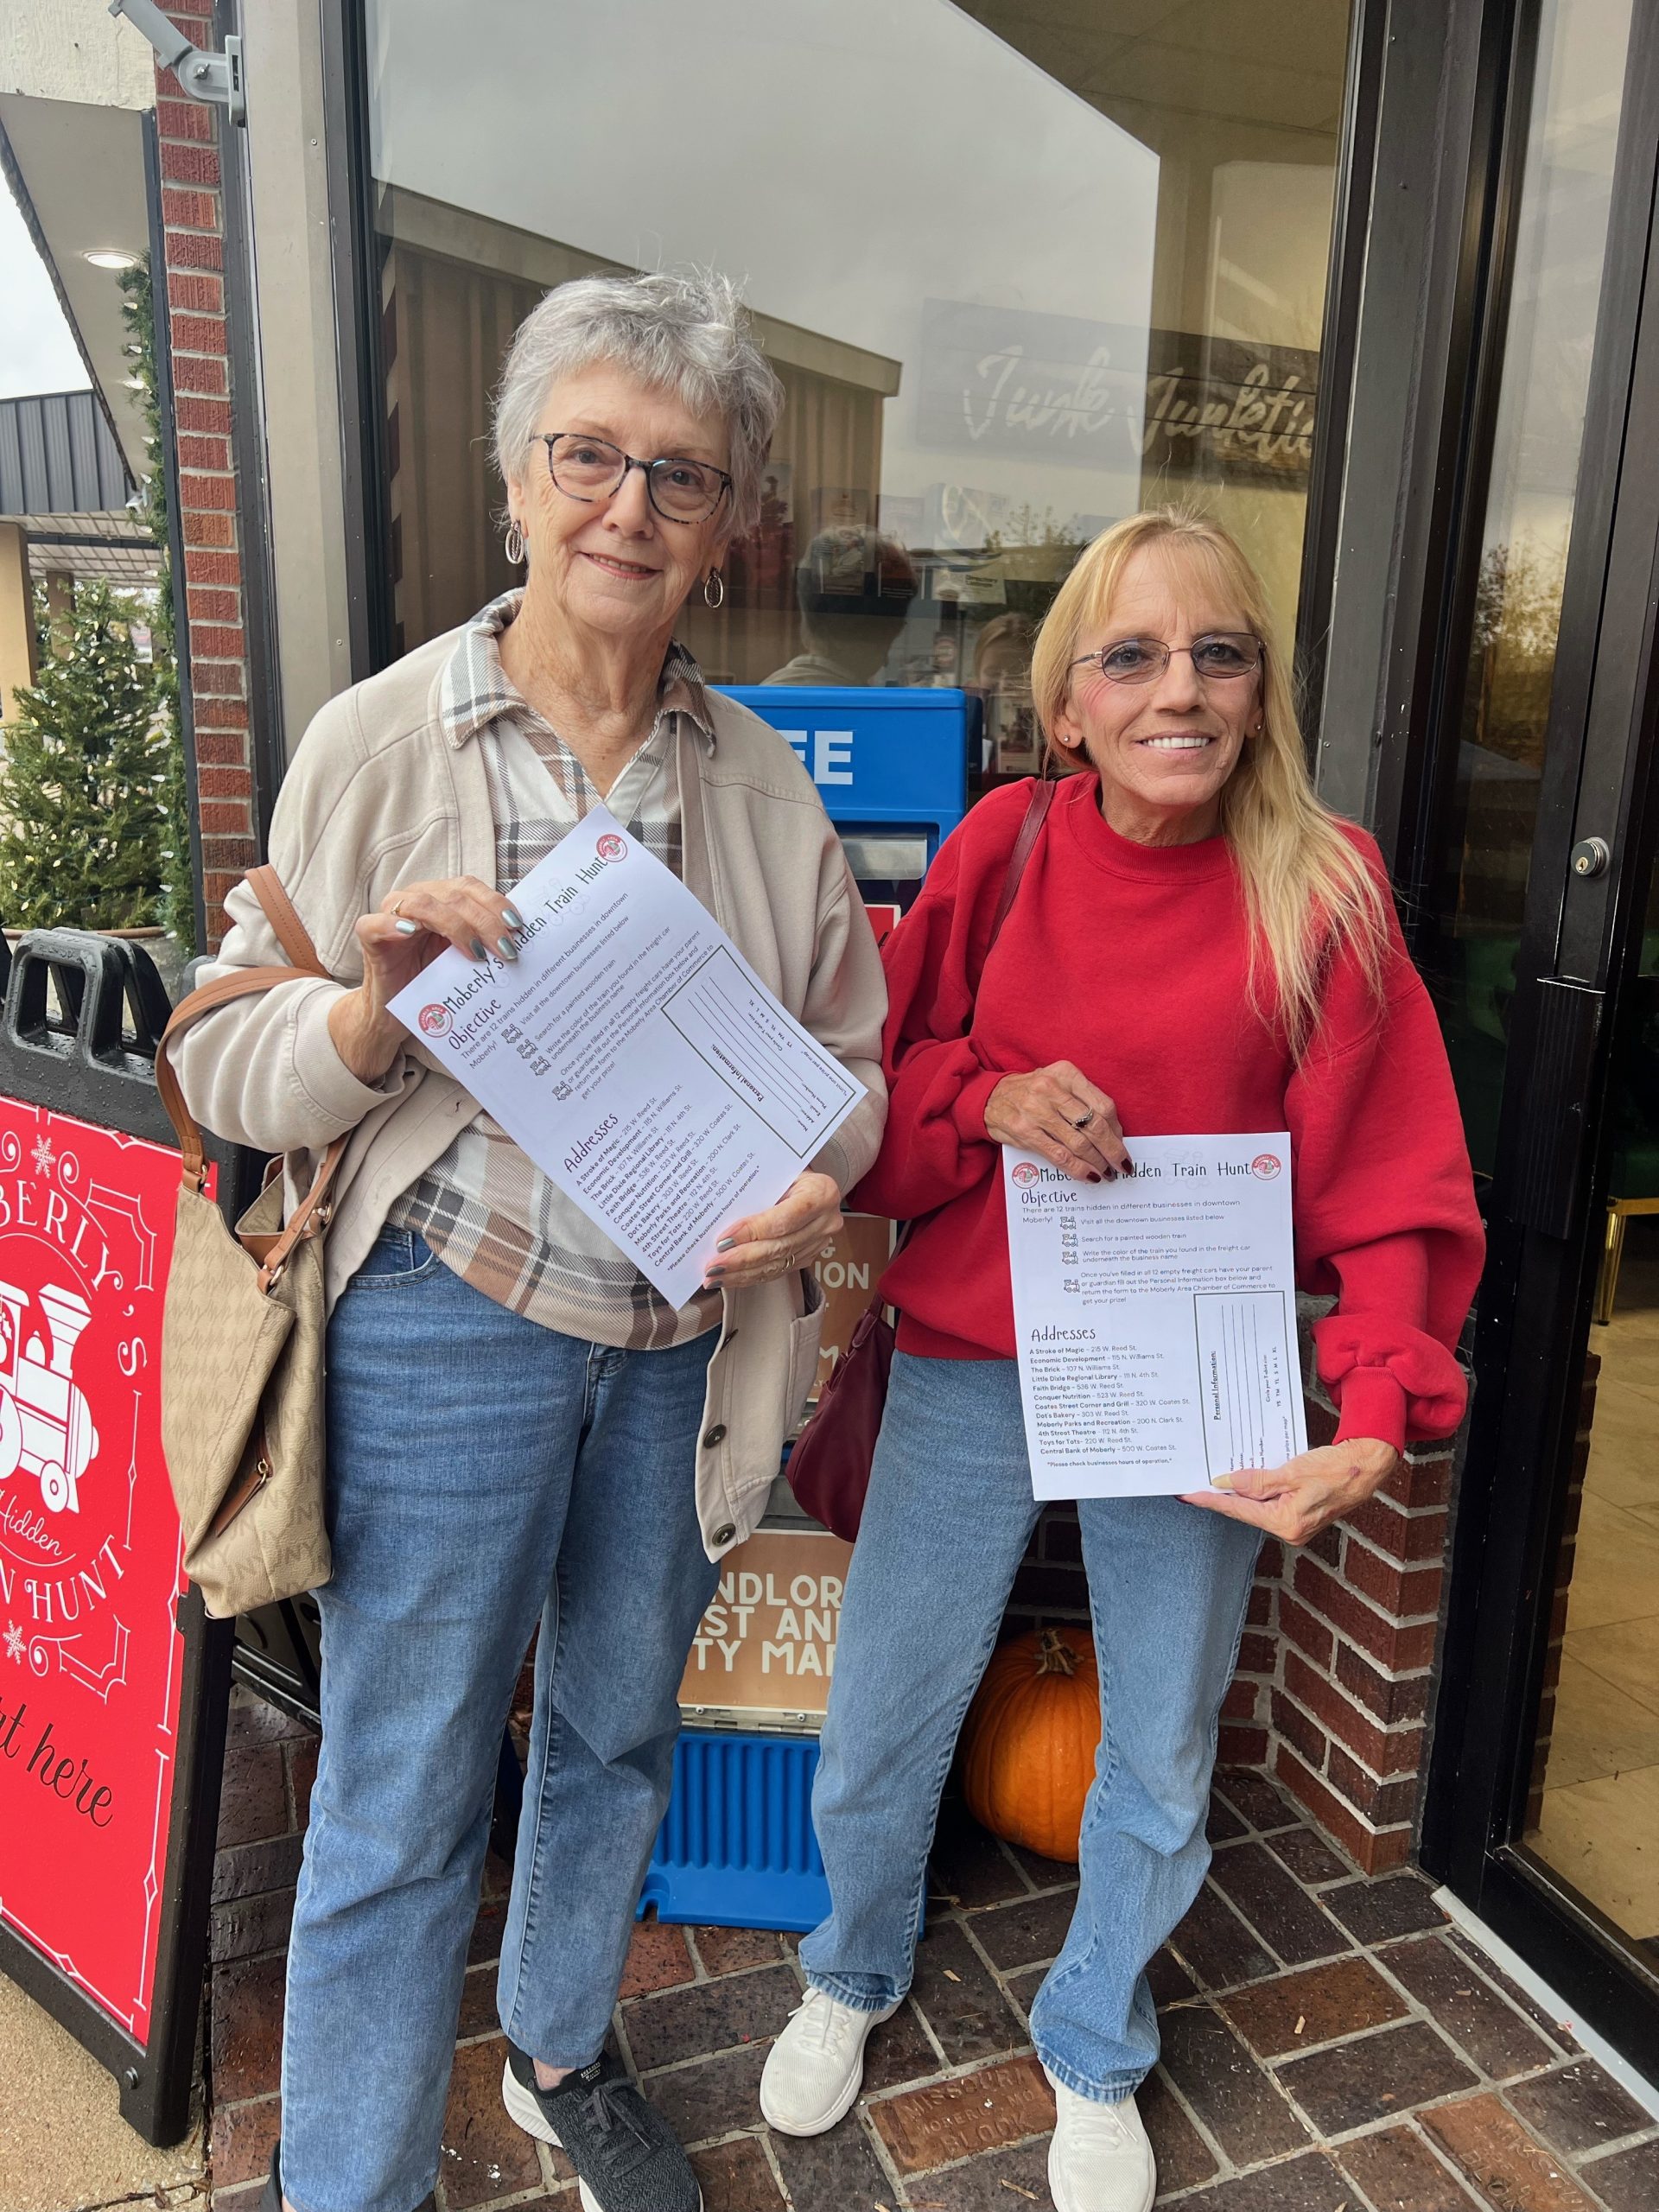 Junk Junktio
Directory
EE
BERLY'S
Hidden
N HUNT
rt here
Moberly's Hidden Train Hunt
Objective
There are 12 trains hidden in different businesses in downtown
Moberly!
Visit all the downtown businesses listed below
Search for a painted wooden train
Write the color of the train you found in the freight car
underneath the business name
Once you've filled in all 12 empty freight cars have your parent
or guardian fill out the Personal Information box below and
return the form to the Moberly Area Chamber of Commerce to
get your prize!
Personal Information:
Addresses
A Stroke of Magic - 215 W. Reed St.
Economic Development - 115 N. Williams St.
The Brick - 107 N. Williams St.
Little Dixie Regional Library - 111 N. 4th St.
Faith Bridge - 536 W. Reed St.
Conquer Nutrition - 523 W. Reed St.
Coates Street Corner and Grill - 320 W. Coates St.
Dot's Bakery - 303 W. Reed St.
Moberly Parks and Recreation - 200 N. Clark St.
4th Street Theatre - 112 N. 4th St.
Toys for Tots - 220 W. Reed St.
Central Bank of Moberly - 500 W. Coates St.
*Please check businesses hours of operation.*
Mobe Hidden Train Hunt
Objective
There are 12 trains hidden in different businesses in downtown
Moberly!
Visit all the downtown businesses listed below
Search for a painted wooden train
Write the color of the train you found in the freight car
underneath the business name
Once you've filled in all 12 empty freight cars have your parent
or guardian fill out the Personal Information box below and
return the form to the Moberly Area Chamber of Commerce to
get your prize!
Personal Information:
Addresses
A Stroke of Magic - 215 W. Reed St.
Economic Development - 115 N. Williams St.
The Brick - 107 N. Williams St.
Little Dixie Regional Library - 111 N. 4th St.
Faith Bridge - 536 W. Reed St.
Conquer Nutrition - 523 W. Reed St.
Coates Street Corner and Grill - 320 W. Coates St.
Dot's Bakery - 303 W. Reed St.
Moberly Parks and Recreation - 200 N. Clark St.
4th Street Theatre - 112 N. 4th St.
Toys for Tots - 220 W. Reed St.
Central Bank of Moberly - 500 W. Coates St.
*Please check businesses hours of operation.*
&
ION
M
NDLOR
IST AN
TY MAP
MISSOURI
MOBERLY MO
BLOCK